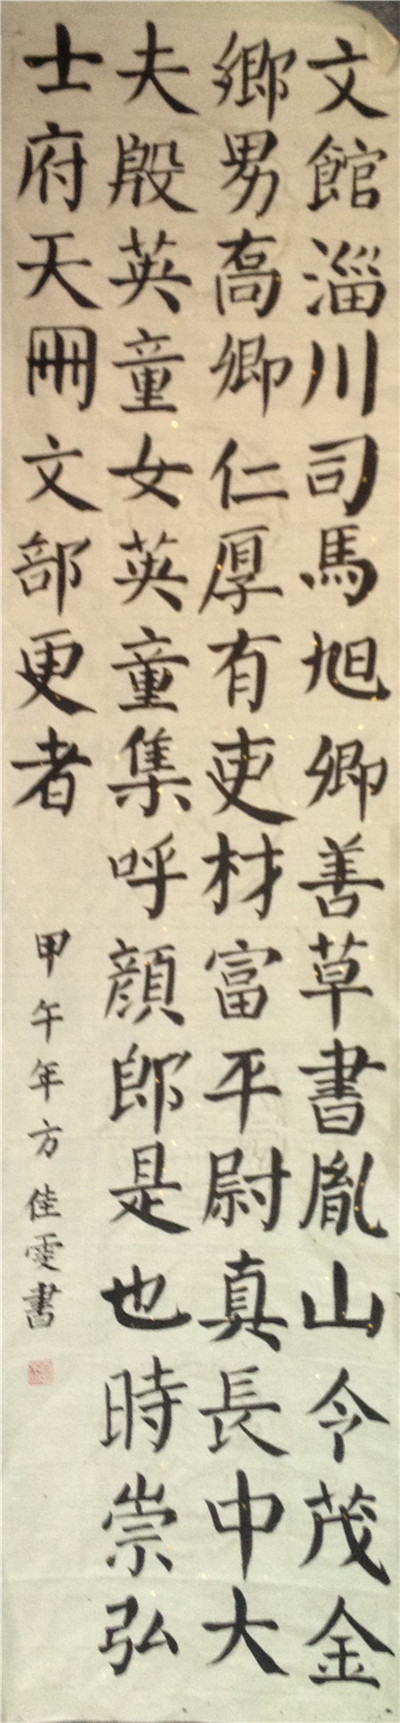 文館淄川司馬旭卿善草書胤山令茂金
鄉男高卿仁厚有吏材富平尉真長中大
夫殷英童女英童集呼顔郎是也時崇弘
士府天冊文部更者
甲午年方佳雯書